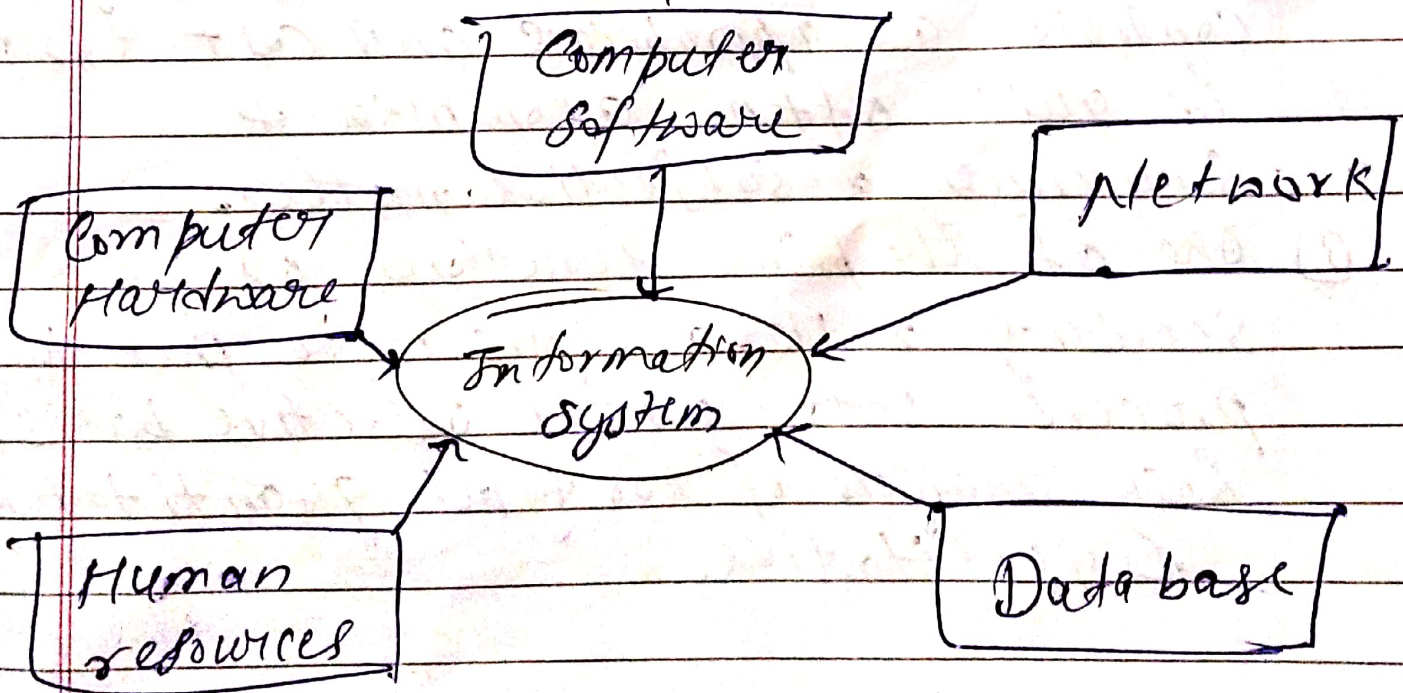 Computer
Software
Network
Computer
Hardware
Information
system
Human
resources
Database